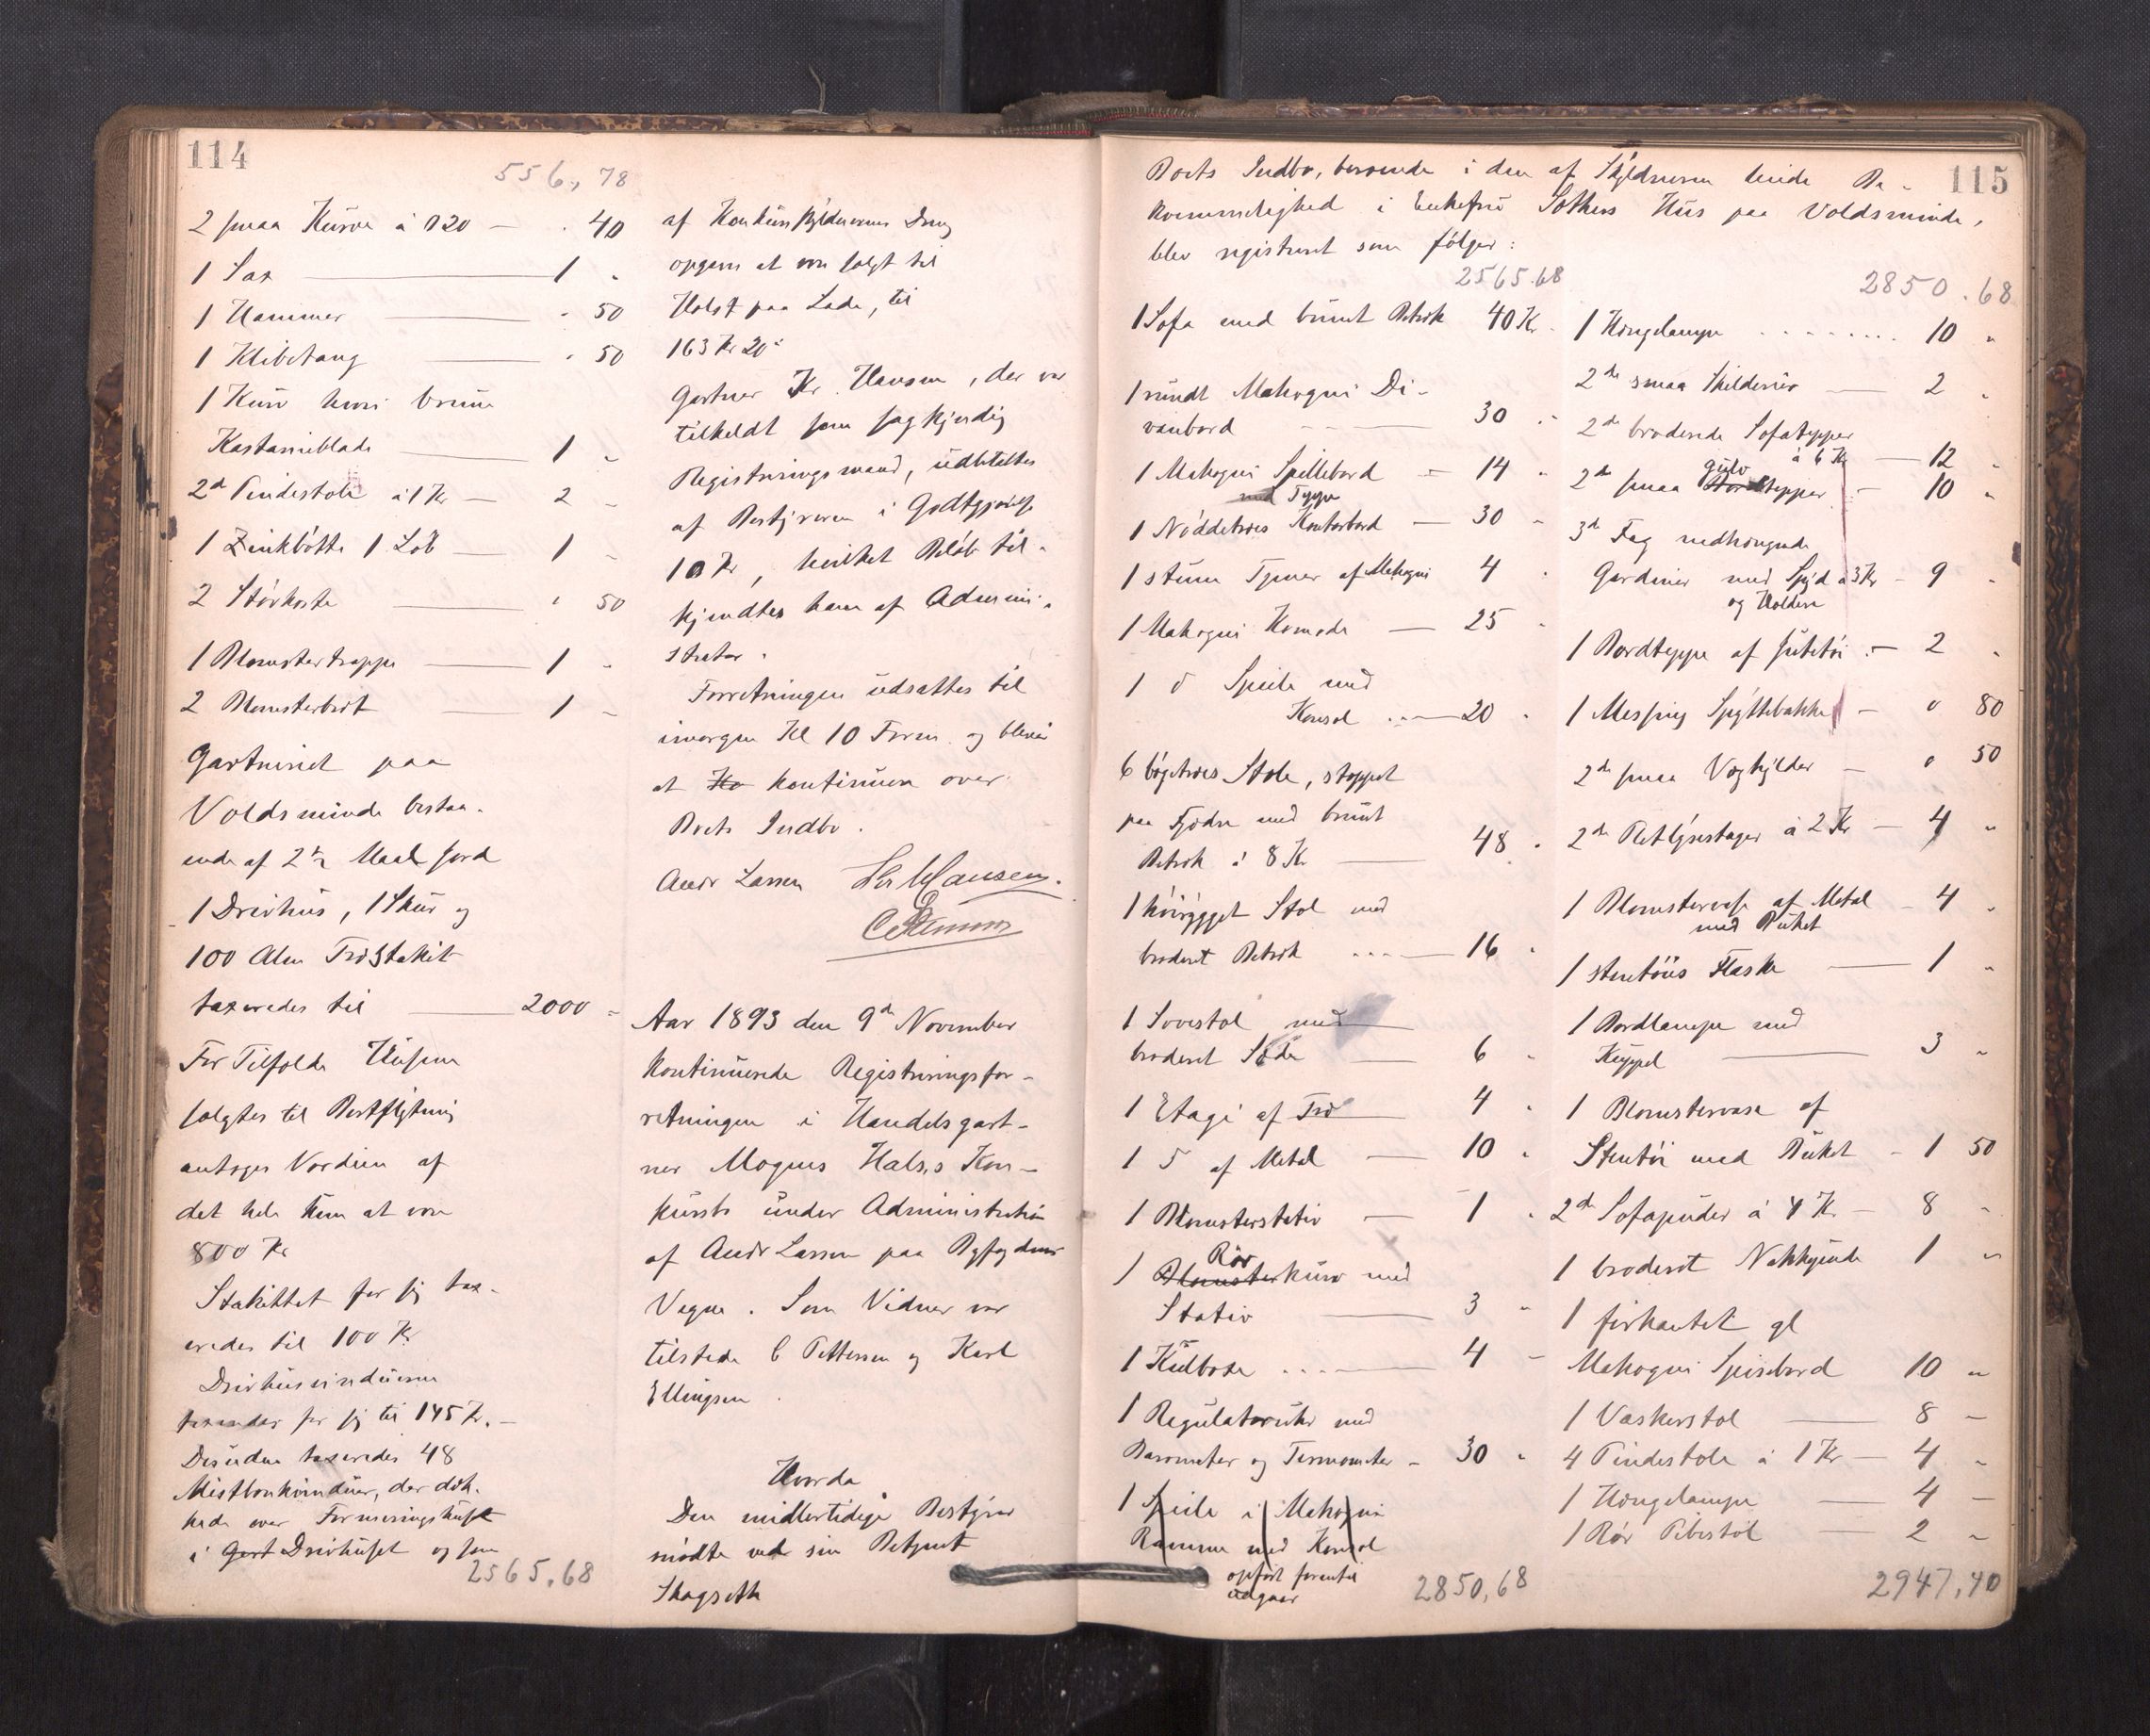 114
556,78
2 smaa Kurve á 020 — " 40
1 Sax — 1 "
1 Hammer — " 50
1 Knibetang — " 50
1 Kurv hvori brune
Kastanieblade — 1 "
2de Pindestole á 1 Kr — 2 "
1 Zinkbøtte 1 Lok — 1 "
2 Støvkoste — " 50
1 Blomstertrappe — 1 "
2 Blomsterbret — 1 "
Gartneriet paa
Voldsminde bestaa-
ende af 2½ Maal Jord
1 Drivhus, 1 Skur og
100 Alen Træstakit
taxeredes til — 2000 "
For Tilfælde Husene
solgtes til Bortflytning
antoges Værdien af
det hele kun at være
800 Kr
Stakittet for sig tax-
eredes til 100 Kr
Drivhusvinduerne
taxeredes for sig til 145 Kr. —
Desuden taxeredes 48
Mistbænkvinduer, der dæk-
kede over Formeringshuset
i Gart Drivhuset og som
2565,68
af Konkursskyldnerens Dreng
opgaves at være solgt til
Holst paa Lade, til
163 Kr 20
Gartner Kr. Hansen, der var
tilkaldt som sagkyndig
Registreringsmand, udbetaltes
af Bestyreren i Godtgjørelse
10 Kr, hvilket Beløb til-
kjendtes ham af Admini-
strator.
Forretningen udsattes til
imorgen Kl 10 Form. og bliver
at Ko kontinuere over
Boets Indbo.
Andr Larsen Kr Hansen.
Aar 1893 den 9de November
kontinuerede Registreringsfor-
retningen i Handelsgart-
ner Mognes Hals,s Kon-
kursbo under Administration
af Andr Larsen paa Byfogdens
Vegne. Som Vidner var
tilstede C Pettersen og Karl
Ellingsen.
Hvorda
Den midlertidige Bestyrer
mødte ved sin Betjent
Skogseth
115
Boets Indbo, beroende i den af Skyldneren leiede Be-
kvemmelighed i Enkefru Sothers Hus paa Voldsminde,
blev registreret som følger:
2565.68
1 Sofa med brunt Betræk 40 Kr "
1 rundt Mahogni Di-
vanbord — 30 "
1 Mahogni Spillebord — 14 "
med Teppe
1 Nøddetræs Kontorbord — 30 "
1 stum Tjener af Mahogni 4 "
1 Mahogni Komode — 25 "
1 d Speile med
Konsol — 20 "
6 bøgetræs Stole, stoppet
paa Fjædre med brunt
Betræk á 8 Kr — 48 "
1 høirygget Stol med
broderet Betræk — 16 "
1 Sovestol med
broderet Sæde — 6 "
1 Etage af Træ 4 "
1 d af Metal — 10 "
1 Blomsterstativ — 1 "
Rør
1 Blomsterkurv med
Stativ — 3 "
1 Kulboxe — 4 "
1 Regulatoruhr med
Barometer og Termometer — 30 "
1 Speile i Mahogni
Ramme med Konsol
opført foran til
udgaar
2850,68
2850.68
1 Hængelampe 10 "
2de smaa Skilderier — 2 "
2de broderede Sofatepper
á 6 Kr — 12 "
Gulv
2de smaa Bordtepper — 10 "
3de Fag nedhængende
Gardiner med Spyd á 3 Kr — 9 "
og Holdere
1 Bordteppe af Jutetøi — 2 "
1 Messing Spyttebakke — " 80
2de smaa Væghylder — " 50
2de Pletlysestager á 2 Kr — 4 "
1 Blomstervase af Metal — 4 "
med Buket
1 stentøis Flaske — 1 "
1 Bordlampe med
Kuppel — 3 "
1 Blomstervase af
Stentøi med Buket — 1 50
2de Sofapuder á 4 Kr — 8 "
1 broderet Nakkepude 1 "
1 firkantet gl
Mahogni Spisebord 10 "
1 Vaskerstol — 8 —
4 Pindestole á 1 Kr — 4 "
1 Hængelampe — 4 —
1 Rør Pibestol — 2 "
2947,40